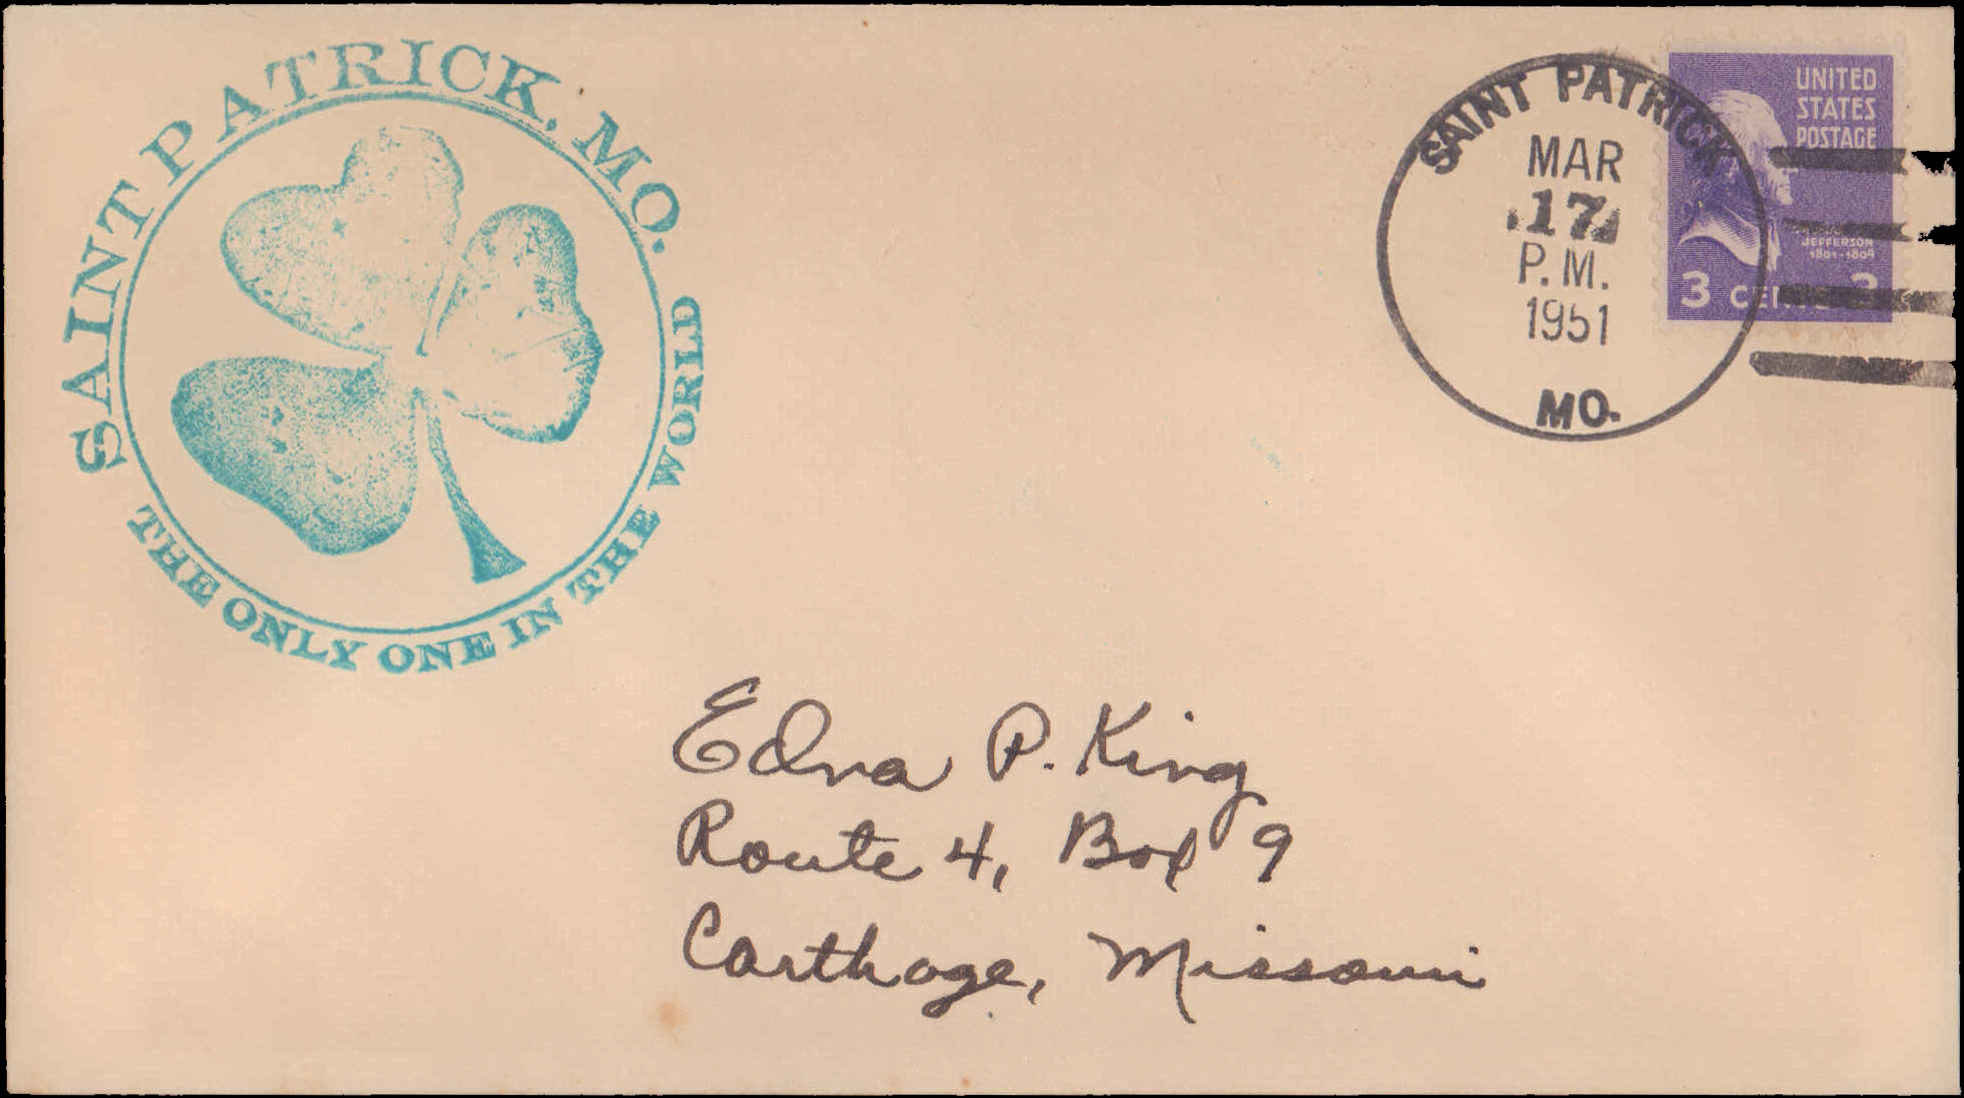 SAINT PATRICK, MO.
THE ONLY ONE IN THE WORLD
SAINT PATRICK
MAR
17
P.M.
1951
MO.
UNITED
STATES
POSTAGE
JEFFERSON
1801-1809
3 CENTS 3
Edna P. King
Route 4, Box 9
Carthage, Missouri